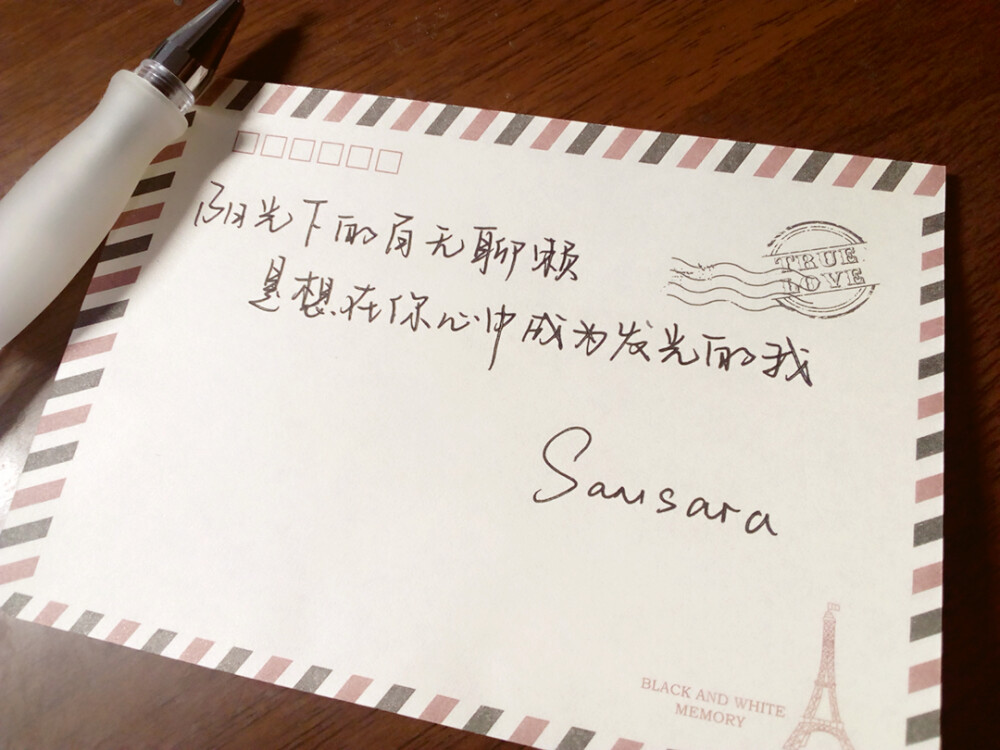 阳光下的百无聊赖
是想在你心中成为发光的我
TRUE
LOVE
Samsara
BLACK AND WHITE
MEMORY